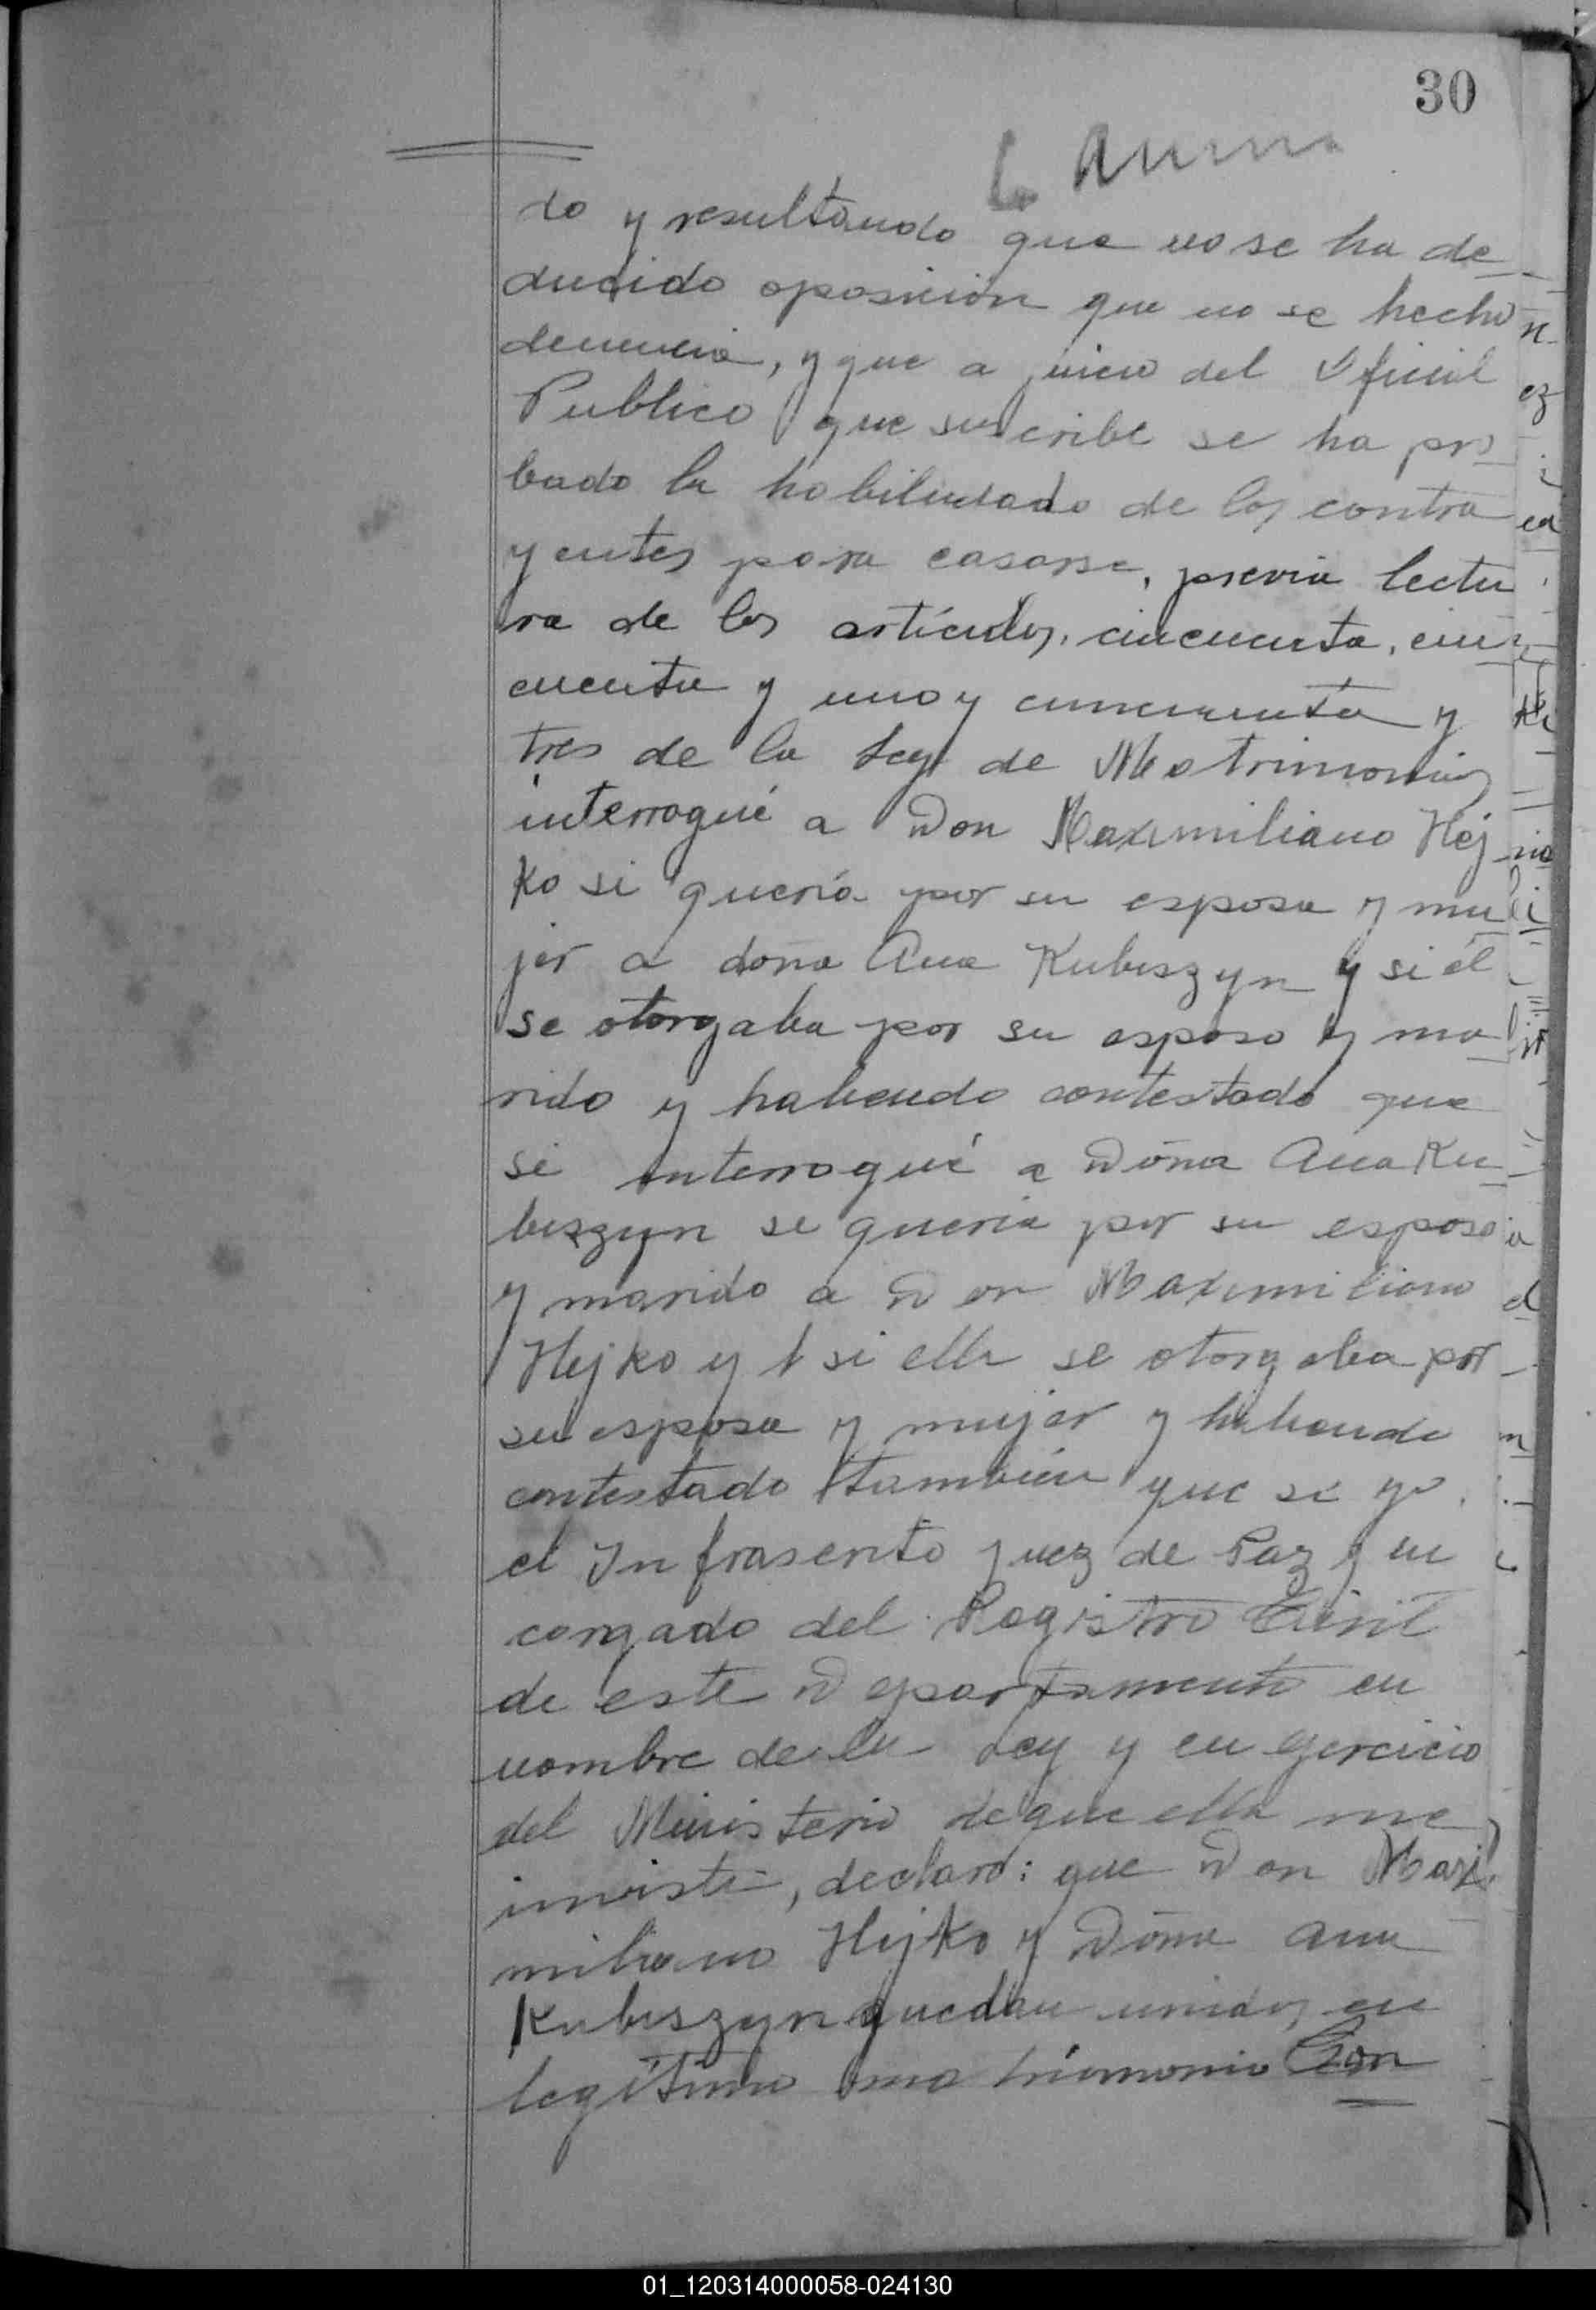 30
do y resultando que no se ha de
ducido oposición que no se hecho
denuncia, y que a juicio del Oficial
Publico que suscribe se ha pro
bado la habilidad de los contra
yentes para casarse, previa lectu
ra de los artículos, cincuenta, cin
cuenta y uno y cincuenta y
tres de la Ley de Matrimonios
interrogué a Don Maximiliano Hej
ko si quería por su esposa y mu
jer a doña Ana Kubiszyn y si él
se otorgaba por su esposo y ma
rido y habiendo contestado que
si interrogué a Doña Ana Ku
biszyn si queria por su esposo
y marido a Don Maximiliano
Hejko y si ella se otorgaba por
su esposa y mujer y habiendo
contestado también que si yo
el Infrascrito Juez de Paz y en
cargado del Registro Civil
de este Departamento en
nombre de la Ley y en ejercicio
del Ministerio de que ella me
inviste, declaro: que Don Maxi
miliano Hejko y Doña Ana
Kubiszyn quedan unidos en
legítimo matrimonio Con
01_120314000058-024130